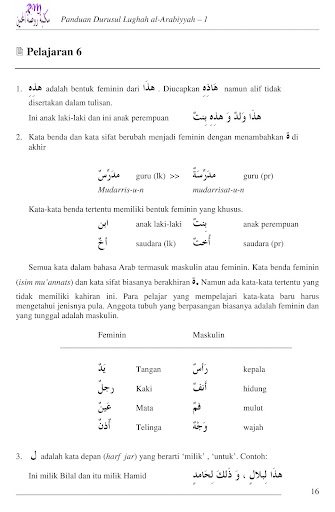 Panduan Durusul Lughah al-Arabiyyah – 1
Pelajaran 6
1. هٰذِهِ adalah bentuk feminin dari هٰذَا . Diucapkan هَاذِهِ namun alif tidak
disertakan dalam tulisan.
Ini anak laki-laki dan ini anak perempuan هٰذَا وَلَدٌ وَ هٰذِهِ بِنتٌ
2. Kata benda dan kata sifat berubah menjadi feminin dengan menambahkan ة di
akhir
مدَرِّسٌ guru (lk) >> مدَرِّسَةٌ guru (pr)
Mudarris-u-n mudarrisat-u-n
Kata-kata benda tertentu memiliki bentuk feminin yang khusus.
ابن anak laki-laki بِنتٌ anak perempuan
أخٌ saudara (lk) أُختٌ saudara (pr)
Semua kata dalam bahasa Arab termasuk maskulin atau feminin. Kata benda feminin
(isim mu'annats) dan kata sifat biasanya berakhiran ة. Namun ada kata-kata tertentu yang
tidak memiliki kahiran ini. Para pelajar yang mempelajari kata-kata baru harus
mengetahui jenisnya pula. Anggota tubuh yang berpasangan biasanya adalah feminin dan
yang tunggal adalah maskulin.
Feminin Maskulin
يَدٌ Tangan رَأسٌ kepala
رِجلٌ Kaki أَنفٌ hidung
عَينٌ Mata فَمٌ mulut
أُذُنٌ Telinga وَجْهٌ wajah
3. لِ adalah kata depan (harf jar) yang berarti 'milik' , 'untuk'. Contoh:
Ini milik Bilal dan itu milik Hamid هٰذَا لِبِلاَلٍ ، وَ ذٰلِكَ لِحَامِدٍ
16